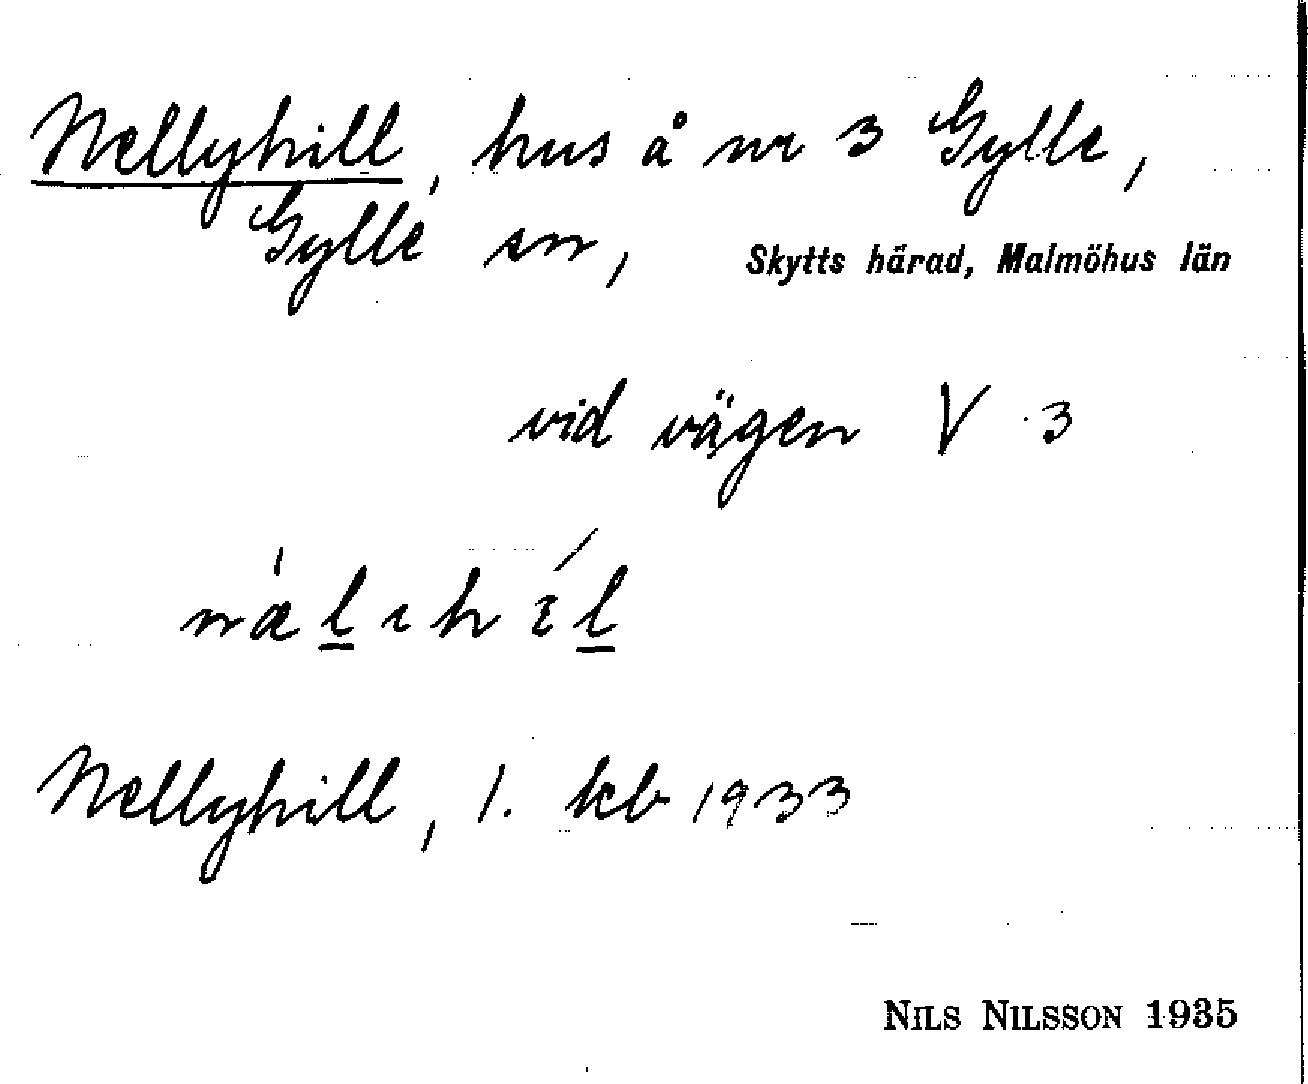 Nellyhill, hus å nr 3 Gylle,
Gylle sn, Skytts härad, Malmöhus län
vid vägen V 3
Nellyhill, 1. lcb 1933
NILS NILSSON 1935